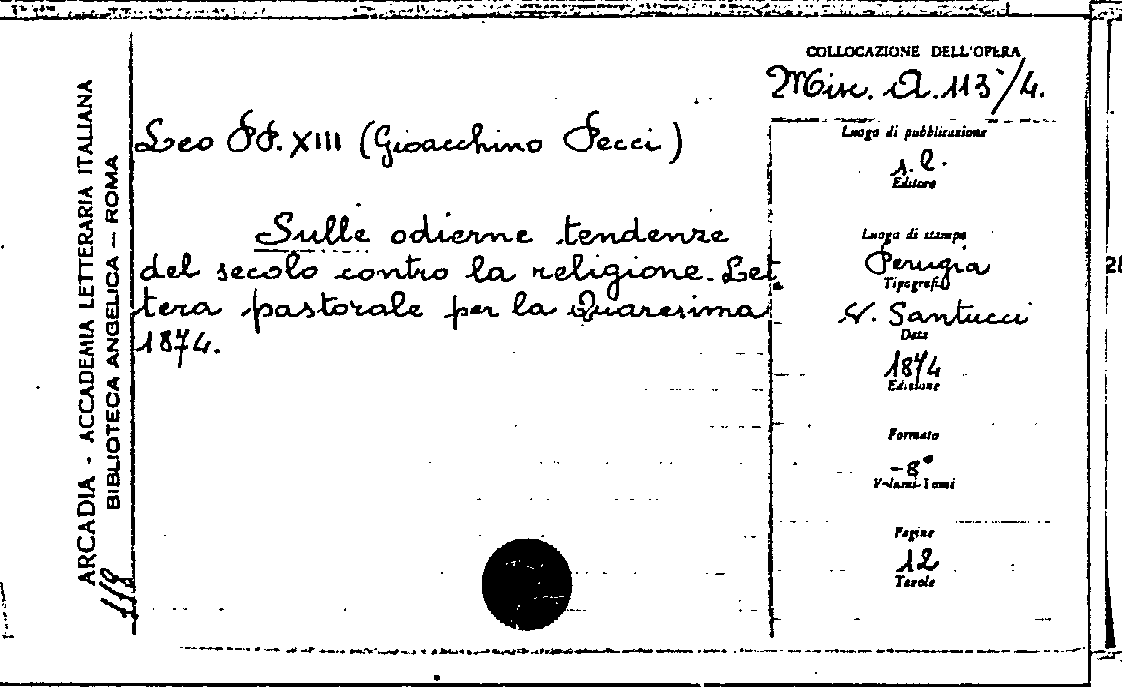 ARCADIA - ACCADEMIA LETTERARIA ITALIANA
BIBLIOTECA ANGELICA — ROMA
Leo PP. XIII (Gioacchino Pecci)
Sulle odierne tendenze
del secolo contro la religione. Let
tera pastorale per la Quaresima
1874.
COLLOCAZIONE DELL'OPERA
Misc. A. 113/4.
Luogo di pubblicazione
s. l.
Editore
Luogo di stampa
Perugia
Tipografia
V. Santucci
Data
1874
Edizione
Formato
-8°
Volumi-Tomi
Pagine
12
Tavole